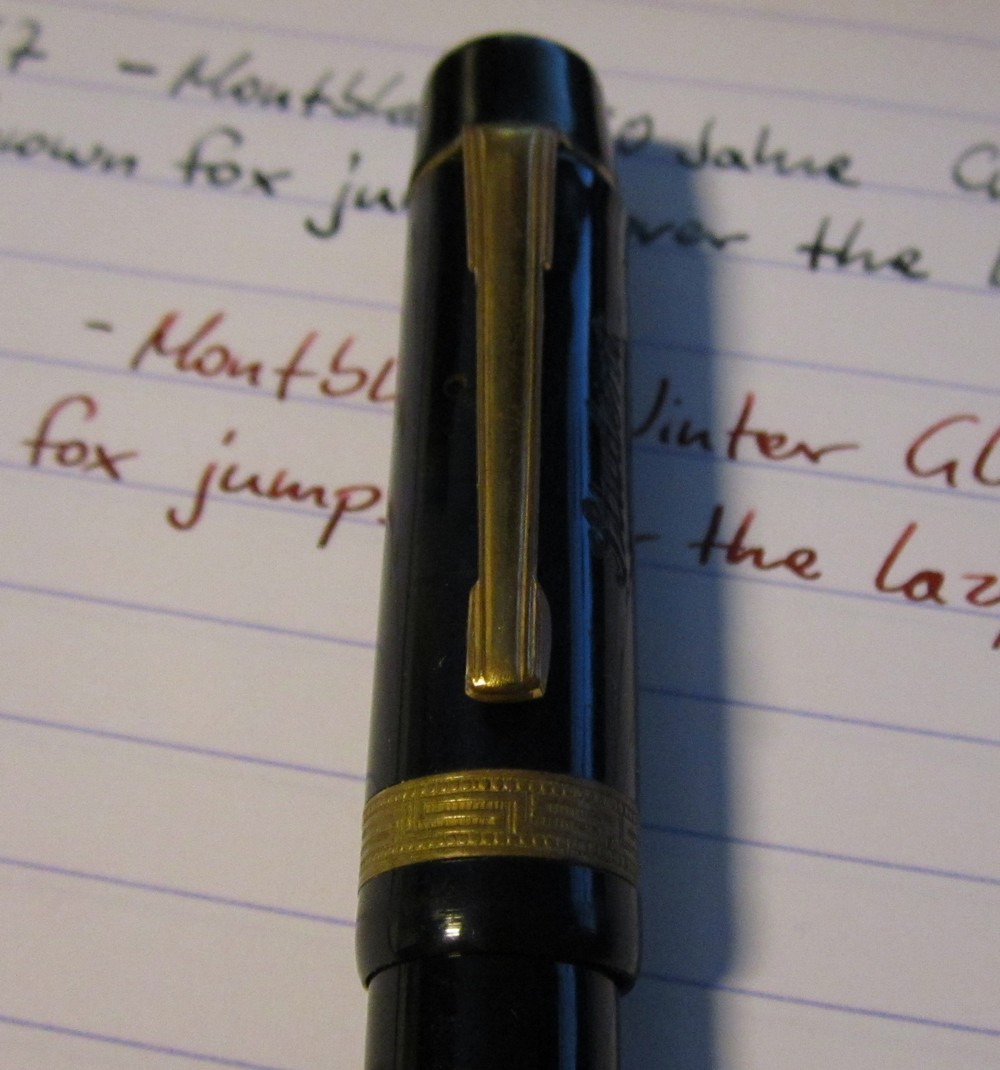 7 - Montbla 0 Jahre
own fox ju over the
- Montbl Winter Gl
fox jump the laz